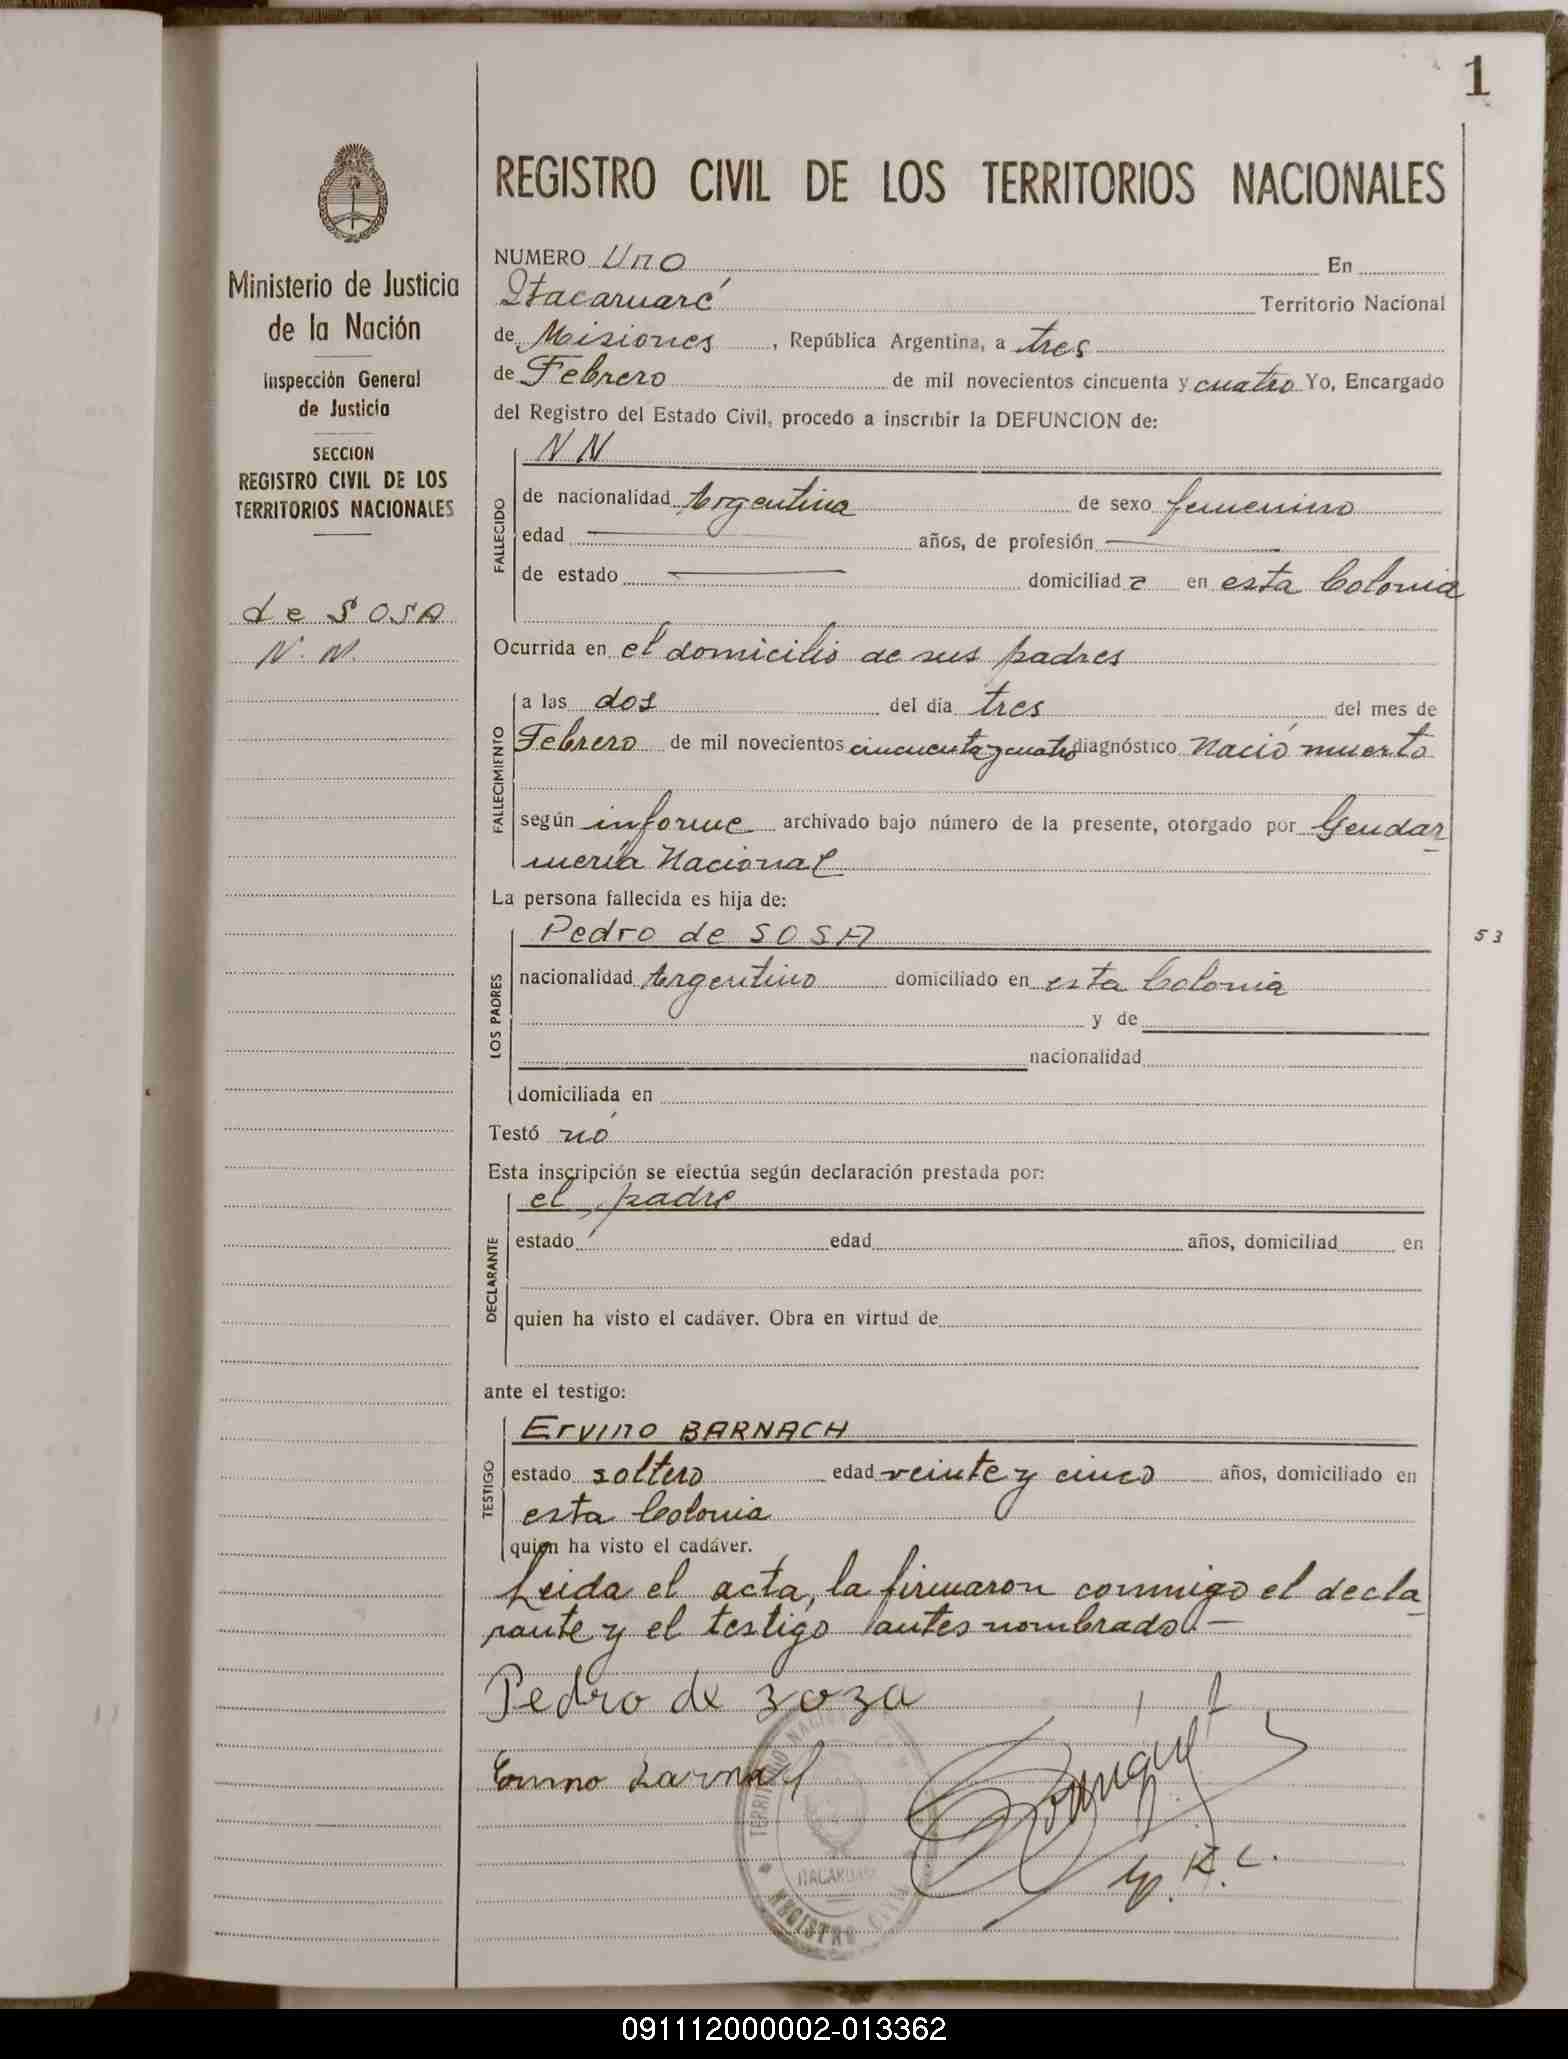 1
REGISTRO CIVIL DE LOS TERRITORIOS NACIONALES
Ministerio de Justicia
de la Nación
Inspección General
de Justicia
SECCION
REGISTRO CIVIL DE LOS
TERRITORIOS NACIONALES
de SOSA
N. N.
NUMERO Uno En
Itacaruaré Territorio Nacional
de Misiones, República Argentina, a tres
de Febrero de mil novecientos cincuenta y cuatro Yo, Encargado
del Registro del Estado Civil, procedo a inscribir la DEFUNCION de:
N N
FALLECIDO
de nacionalidad Argentina de sexo femenino
edad — años, de profesión —
de estado — domiciliad a en esta Colonia
Ocurrida en el domicilio de sus padres
FALLECIMIENTO
a las dos del día tres del mes de
Febrero de mil novecientos cincuenta y cuatro diagnóstico Nació muerto
según informe archivado bajo número de la presente, otorgado por Gendar-
mería Nacional
La persona fallecida es hija de:
Pedro de SOSA
53
LOS PADRES
nacionalidad Argentino domiciliado en esta Colonia
y de
nacionalidad
domiciliada en
Testó nó
Esta inscripción se efectúa según declaración prestada por:
el padre
DECLARANTE
estado edad años, domiciliad en
quien ha visto el cadáver. Obra en virtud de
ante el testigo:
Ervino BARNACH
TESTIGO
estado soltero edad veinte y cinco años, domiciliado en
esta Colonia
quien ha visto el cadáver.
Leida el acta, la firmaron conmigo el decla-
rante y el testigo antes nombrado.—
Pedro de zoza
TERRITORIO NACIONAL
ITACARUARE
REGISTRO CIVIL
R. C.
091112000002-013362